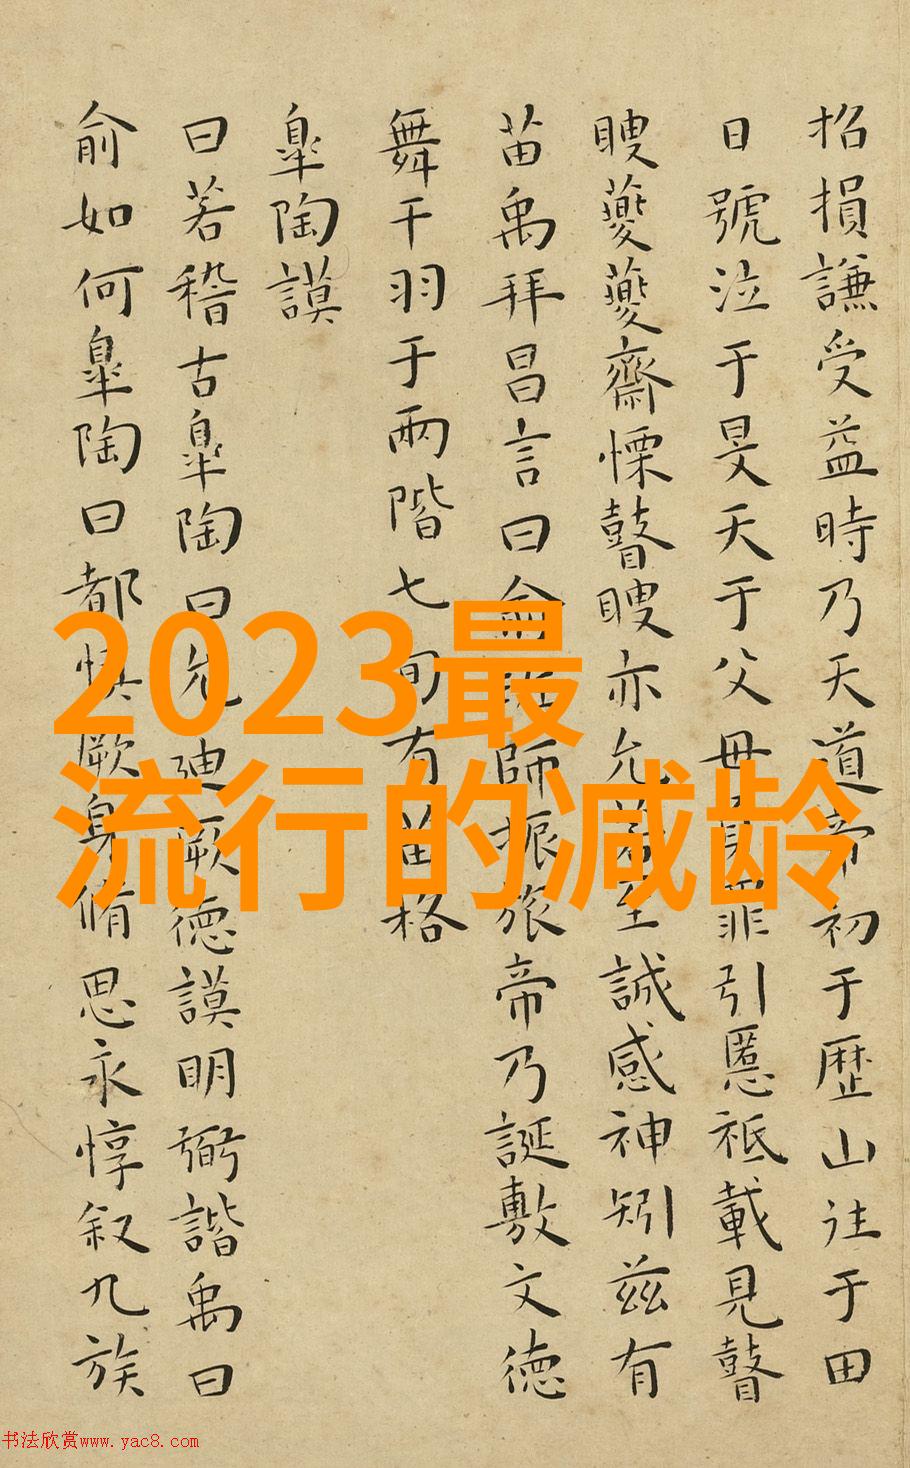 招損謙受益時乃天道帝初于歷山往于田
日號泣于旻天于父母負罪引慝祗載見瞽
瞍夔夔齋慄瞽瞍亦允若至誠感神矧茲有
苗禹拜昌言曰俞班師振旅帝乃誕敷文德
舞干羽于兩階七旬有苗格
皐陶謨
曰若稽古皐陶曰允迪厥德謨明弼諧禹曰
俞如何皐陶曰都慎厥身脩思永惇叙九族
2023最
流行的减龄
书法欣赏www.yac8.com